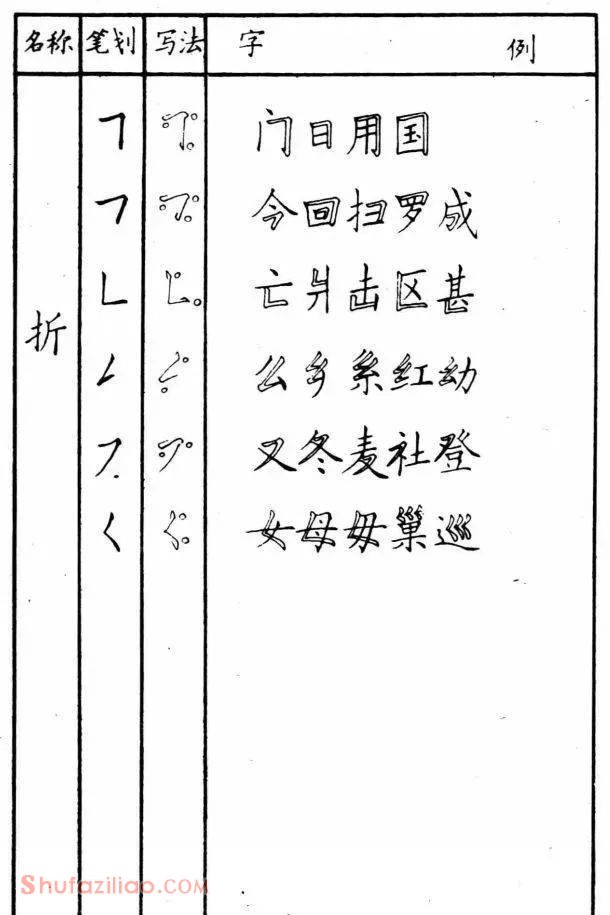 名称 笔划 写法 字 例
折
㇕ 门日用国
㇕ 今回扫罗成
㇗ 亡爿击区甚
㇜ 么乡系红幼
㇇ 又冬麦社登
㇛ 女母毋巢巡
Shufaziliao.COM